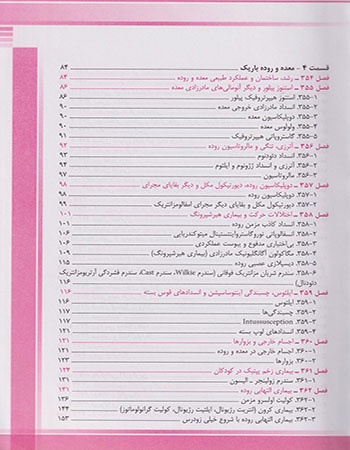 قسمت ۴ - معده و روده باریک ۸۴
فصل ۳۵۴ ـ رشد، ساختمان و عملکرد طبیعی معده و روده ۸۴
فصل ۳۵۵ ـ استنوز پیلور و دیگر آنومالی‌های مادرزادی معده ۸۶
۳۵۵-۱. استنوز هیپرتروفیک پیلور ۸۶
۳۵۵-۲. انسداد مادرزادی خروجی معده ۹۰
۳۵۵-۳. دوپلیکاسیون معده ۹۰
۳۵۵-۴. ولولوس معده ۹۰
۳۵۵-۵. گاستروپاتی هیپرتروفیک ۹۱
فصل ۳۵۶ ـ آترزی، تنگی و مالروتاسیون روده ۹۲
۳۵۶-۱. انسداد دئودنوم ۹۳
۳۵۶-۲. آترزی و انسداد ژژونوم و ایلئوم ۹۴
۳۵۶-۳. مالروتاسیون ۹۷
فصل ۳۵۷ ـ دوپلیکاسیون روده، دیورتیکول مکل و دیگر بقایای مجرای ۹۸
۳۵۷-۱. دوپلیکاسیون روده ۹۸
۳۵۷-۲. دیورتیکول مکل و دیگر بقایای مجرای امفالومزانتریک ۹۹
فصل ۳۵۸ ـ اختلالات حرکت و بیماری هیرشپرونگ ۱۰۱
۳۵۸-۱. انسداد کاذب مزمن روده ۱۰۱
۳۵۸-۲. انسفالوپاتی نوروگاسترواینتستینال میتوکندریایی
۳۵۸-۳. بی‌اختیاری مدفوع و یبوست عملکردی ۱۰۶
۳۵۸-۴. مگاکولون آگانگلیونیک مادرزادی (بیماری هیرشپرونگ)
۳۵۸-۵. دیسپلازی عصبی روده ۱۱۵
۳۵۸-۶. سندرم شریان مزانتریک فوقانی (سندرم Wilkie، سندرم Cast، سندرم فشردگی آرتریومزانتریک
دئودنال) ۱۱۶
فصل ۳۵۹ ـ ایلئوس، چسبندگی اینتوساسپشن و انسدادهای قوس بسته ۱۱۶
۳۵۹-۱. ایلئوس ۱۱۶
۳۵۹-۲. چسبندگی‌ها ۱۱۷
۳۵۹-۳. Intussusception ۱۱۷
۳۵۹-۴. انسدادهای لوپ بسته ۱۲۱
فصل ۳۶۰ ـ اجسام خارجی و بزوارها ۱۲۱
۳۶۰-۱. اجسام خارجی در معده و روده ۱۲۱
۳۶۰-۲. بزوارها
فصل ۳۶۱ ـ بیماری زخم پپتیک در کودکان ۱۲۴
۳۶۱-۱. سندرم زولینجر ـ الیسون ۱۳۱
فصل ۳۶۲ ـ بیماری التهابی روده ۱۳۱
۳۶۲-۱. کولیت اولسرو مزمن ۱۳۶
۳۶۲-۲. بیماری کرون (انتریت رژیونال، ایلئیت رژیونال، کولیت گرانولوماتوز) ۱۴۴
۳۶۲-۳. بیماری التهابی روده با شروع خیلی زودرس ۱۵۳